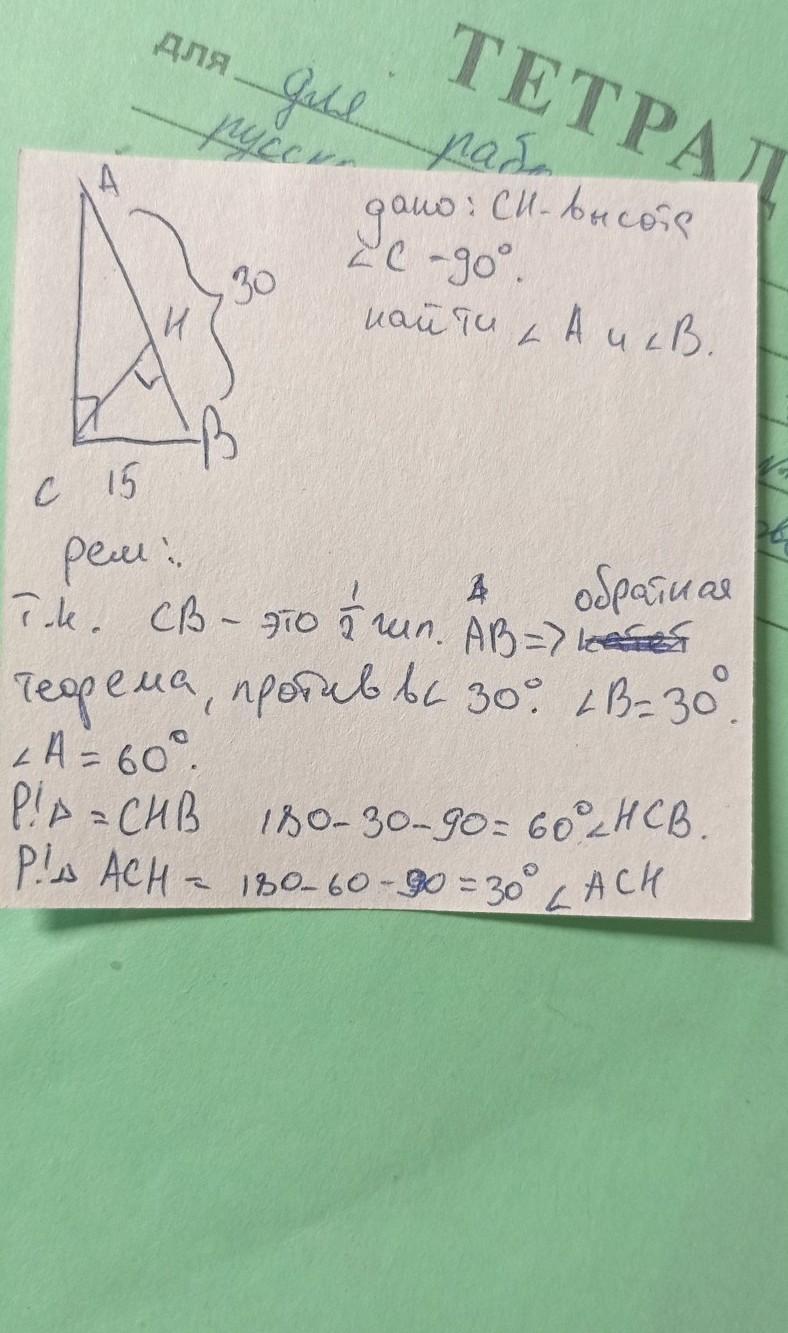 для для
ТЕТРАД
русско работ
A
30
H
B
C 15
дано: CH - высота
∠C - 90°.
найти ∠A и ∠B.
реш:
т.к. CB - это 1/2 гип. AB => обратная
теорема, против в∠ 30°. ∠B = 30°.
∠A = 60°.
P!△ = CHB 180 - 30 - 90 = 60° ∠HCB.
P!△ ACH = 180 - 60 - 90 = 30° ∠ACH